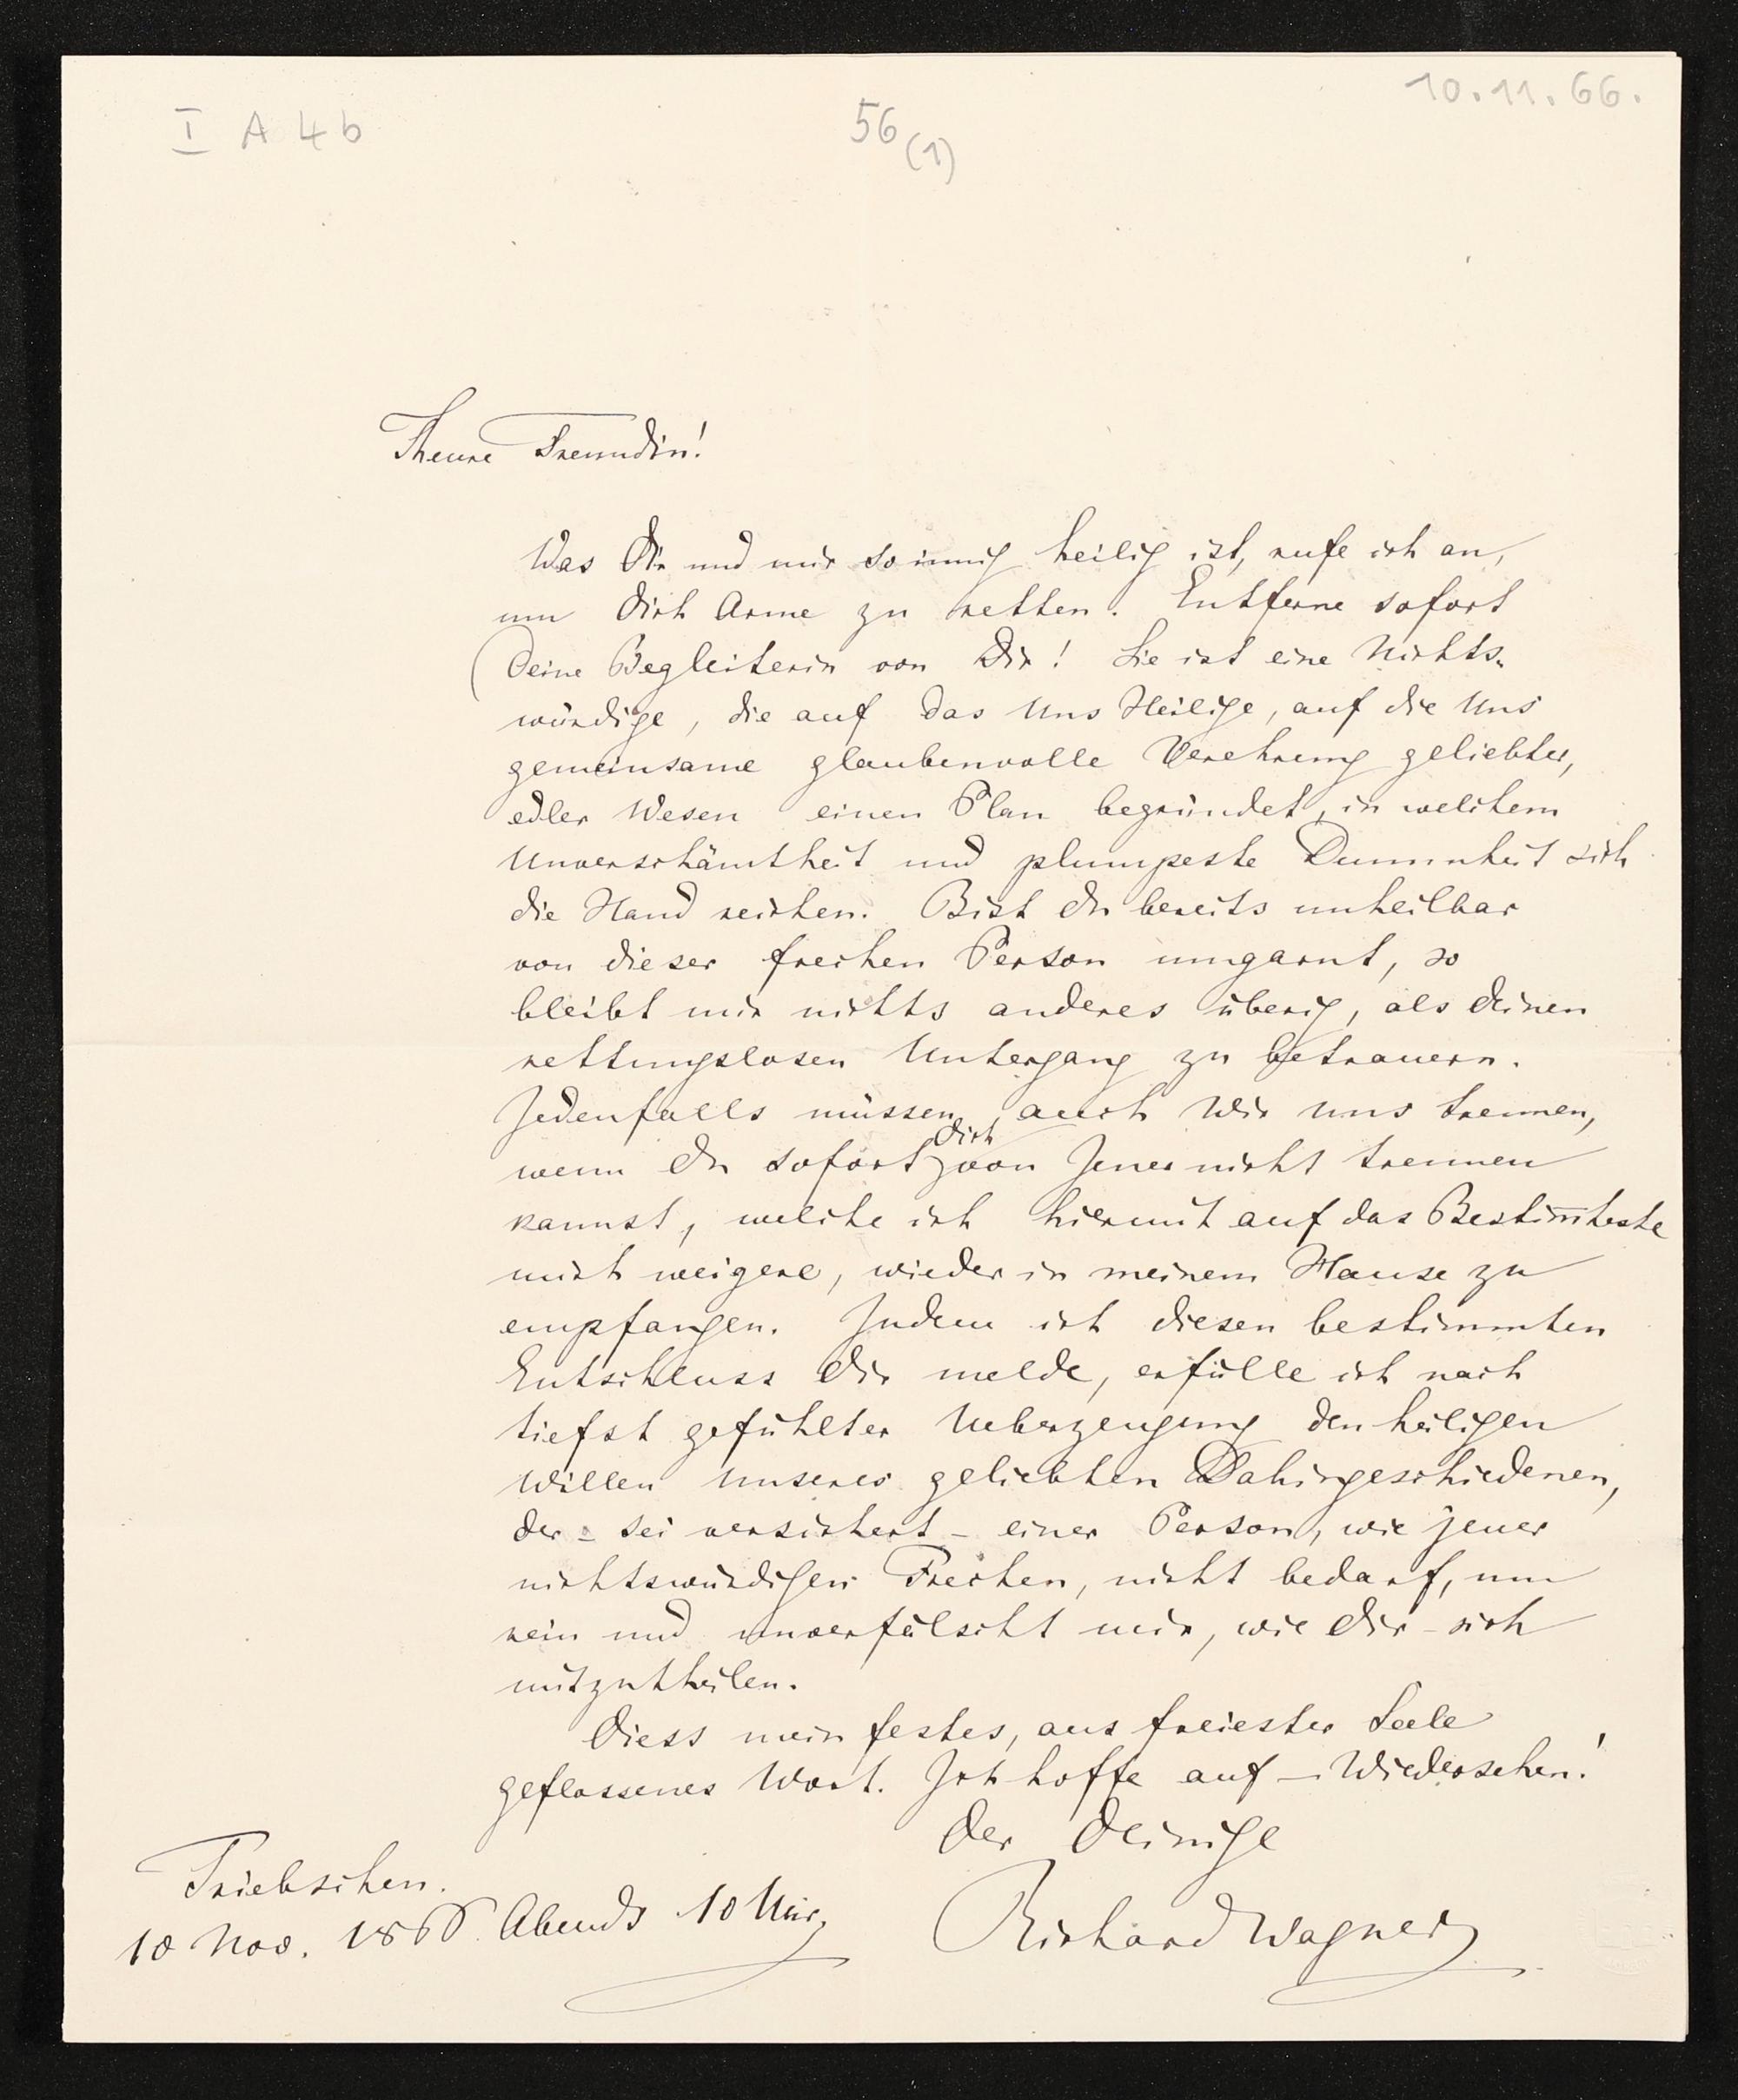 I A 4 b
56 (1)
10. 11. 66.
Theure Freundin!
Was Dir und mir so innig heilig ist, rufe ich an,
um dich Arme zu retten. Entferne sofort
Deine Begleiterin von Dir! Sie ist eine Nichts-
würdige, die auf das Uns Heilige, auf die Uns
gemeinsame glaubenvolle Verehrung geliebter,
edler Wesen einen Plan begründet, in welchem
Unverschämtheit und plumpeste Dummheit sich
die Hand reichen. Bist du bereits unheilbar
von dieser frechen Person umgarnt, so
bleibt mir nichts anderes überig, als deinen
rettungslosen Untergang zu betrauern.
Jedenfalls müssen auch Wir uns trennen,
wenn du sofort dich von Jener nicht trennen
kannst, welche ich hiermit auf das Bestim̅teste
mich weigere, wieder in meinem Hause zu
empfangen. Indem ich diesen bestimmten
Entschluss dir melde, erfülle ich nach
tiefst gefühlter Ueberzeugung den heiligen
Willen unseres geliebten Dahingeschiedenen,
der - sei versichert - einer Person, wie jener
nichtswürdigen Frechen, nicht bedarf, um
rein und unverfälscht mir, wie dir - sich
mitzutheilen.
Diess mein festes, aus freiester Seele
geflossenes Wort. Ich hoffe auf - Wiedersehen!
Der Deinige
Richard Wagner
Triebschen.
10 Nov. 1866. Abends 10 Uhr,